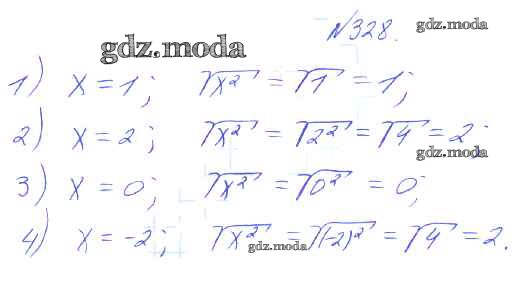 №328. gdz.moda
gdz.moda
1) x = 1; √x² = √1 = 1;
2) x = 2; √x² = √2² = √4 = 2;
gdz.moda
3) x = 0; √x² = √0² = 0;
4) x = -2; √x² = √(-2)² = √4 = 2.
gdz.moda